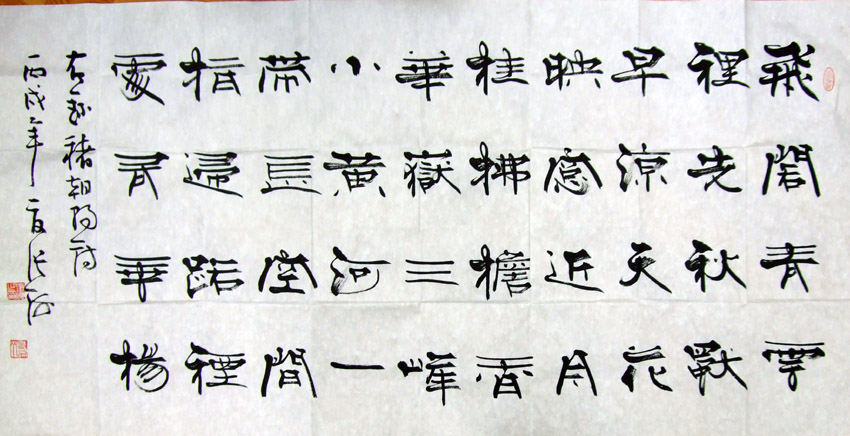 飛閣青雲
裡先秋獨
早涼天花
映窗近月
桂拂檐香
華嶽三峰
小黃河一
帶長空間
指歸路煙
處有垂楊
右錄褚朝陽詩
丙戌年夏張